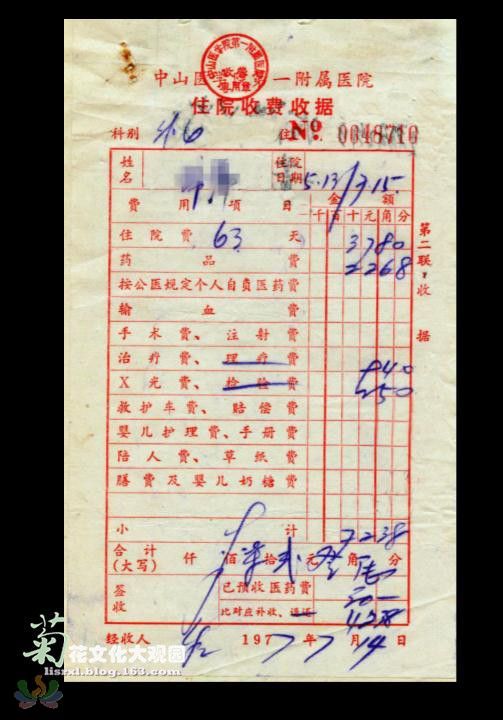 中山医学院第一附属医院
收费
专用章
中山医学院第一附属医院
住院收费收据
科别 外6 住 No. 0048716
姓名 住院日期 5.13/7.15
费用项目 金额
千百十元角分
住院费 63 天 3780
药品费 2268
按公医规定个人自负医药费
输血费
手术费、注射费
治疗费、理疗费 940
X光费、检验费 250
救护车费、赔偿费
婴儿护理费、手册费
陪人费、草纸费
膳费及婴儿奶糖费
小计 7238
合计(大写) 仟 佰 柒拾 贰元 叁角 分
签收 已预收医药费 30—
比对应补收、退还 4238
经收人 1977年7月14日
第二联:收据
菊花文化大观园
lisrxl.blog.163.com